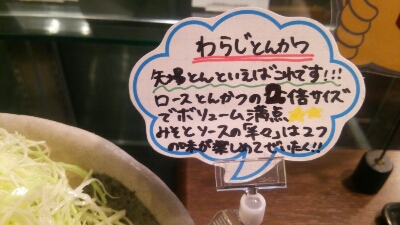 わらじとんかつ
矢場とんといえばこれです!!!
ロースとんかつの2倍サイズ
でボリューム満点
みそとソースの「半々」は2つ
の味が楽しめてぜいたく!!